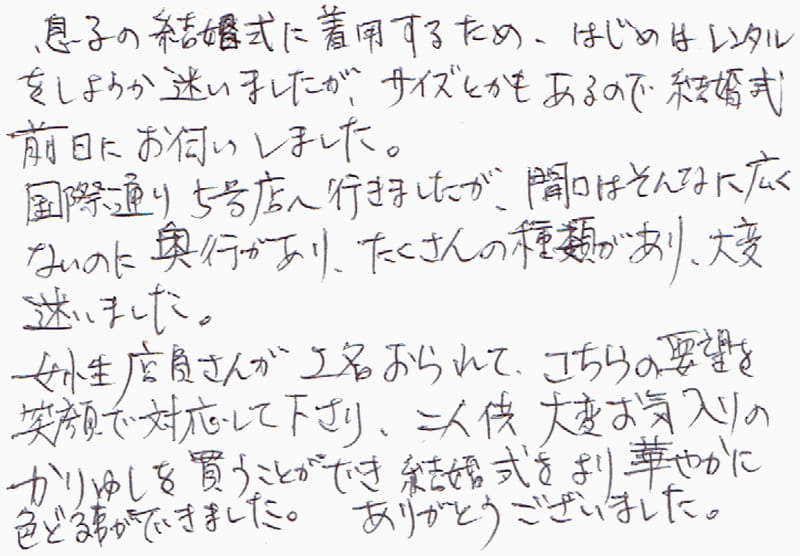 息子の結婚式に着用するため、はじめはレンタル
をしようか迷いましたが、サイズとかもあるので結婚式
前日にお伺いしました。
国際通り5号店へ行きましたが、間口はそんなに広く
ないのに奥行があり、たくさんの種類があり、大変
迷いました。
女性店員さんが2名おられて、こちらの要望を
笑顔で対応して下さり、二人供大変お気入りの
かりゆしを買うことができ結婚式をより華やかに
色どる事ができました。 ありがとうございました。